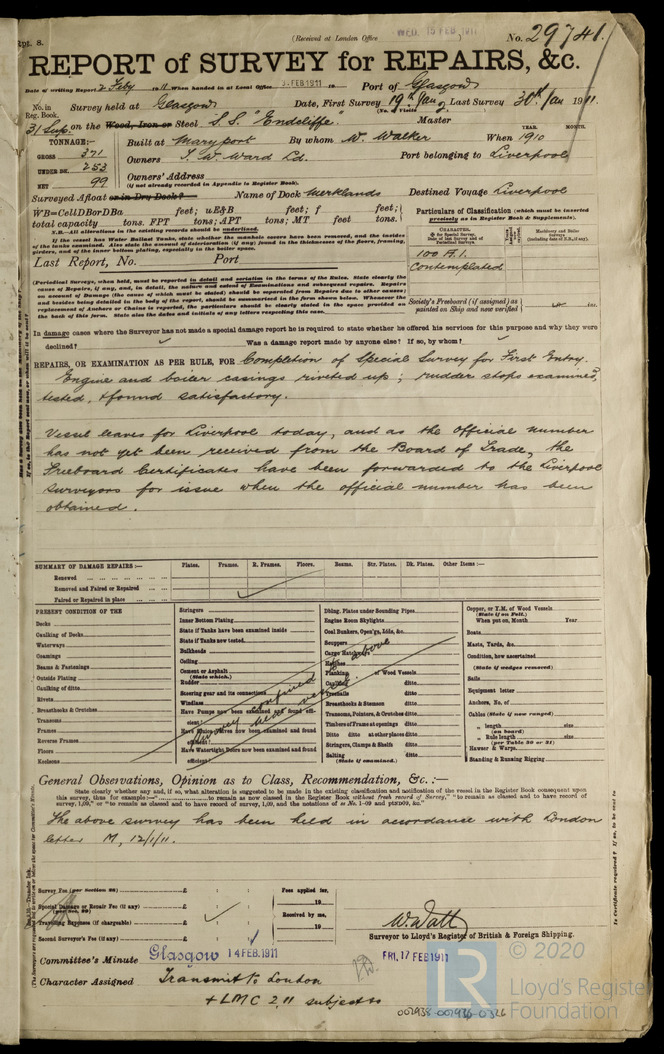 Rpt. 8.
(Received at London Office WED. 15 FEB, 1911
No. 29741.
REPORT of SURVEY for REPAIRS, &c.
Date of writing Report 2 Feby 1911 When handed in at Local Office 3.FEB1911 19 Port of Glasgow
No. in Reg. Book. Survey held at Glasgow Date, First Survey 19th Jany Last Survey 30th Jan 1911
(No. of Visits 2
31 Sup. on the Wood, Iron or Steel S.S. "Endcliffe." Master
TONNAGE:— Built at Maryport By whom W. Walker When 1910
YEAR. MONTH.
GROSS 371 Owners T. W. Ward Ld. Port belonging to Liverpool
UNDER DK. 253 Owners' Address
NET 99 (if not already recorded in Appendix to Register Book.)
Surveyed Afloat or in Dry Dock? Name of Dock Merklands Destined Voyage Liverpool
WB=CellDBorDBa feet; uE&B feet; f feet;
total capacity tons. FPT tons; APT tons; MT feet tons.
N.B.—All alterations in the existing records should be underlined.
If the vessel has Water Ballast Tanks, state whether the manhole covers have been removed, and the insides
of the tanks examined. Also state the amount of deterioration (if any) found in the thicknesses of the floors, framing,
girders, and of the inner bottom plating, especially in the boiler space.
Particulars of Classification (which must be inserted
precisely as in Register Book & Supplements).
CHARACTER.
Machinery and Boiler Surveys
100 A.1.
Contemplated
Last Report, No. Port
(Periodical Surveys, when held, must be reported in detail and seriatim in the terms of the Rules. State clearly the
cause of Repairs, if any, and, in detail, the nature and extent of Examinations and subsequent repairs. Repairs
on account of Damage (the cause of which must be stated) should be separated from Repairs due to other causes;
and besides being detailed in the body of the report, should be summarised in the form shown below. Whenever the
replacement of Anchors or Chains is reported, the particulars should be clearly stated in the space provided on
the back of this form. State also the dates and initials of any letters respecting this case.
Society's Freeboard (if assigned) as
painted on Ship and now verified ins.
In damage cases where the Surveyor has not made a special damage report he is required to state whether he offered his services for this purpose and why they were
declined? Was a damage report made by anyone else? If so, by whom?
REPAIRS, OR EXAMINATION AS PER RULE, FOR Completion of Special Survey for First Entry.
Engine and boiler casings riveted up; rudder stops examined,
tested, & found satisfactory.
Vessel leaves for Liverpool today, and as the Official number
has not yet been received from the Board of Trade, the
Freeboard Certificates have been forwarded to the Liverpool
Surveyors for issue when the official number has been
obtained.
SUMMARY OF DAMAGE REPAIRS:— Plates. Frames. R. Frames. Floors. Beams. Str. Plates. Dk. Plates. Other Items:—
Renewed
Removed and Faired or Repaired
Faired or Repaired in place
PRESENT CONDITION OF THE
Decks
Caulking of Decks
Waterways
Coamings
Beams & Fastenings
Outside Plating
Caulking of ditto
Rivets
Breasthooks & Crutches
Transoms
Frames
Reverse Frames
Floors
Keelsons
Stringers
Inner Bottom Plating
State if Tanks have been examined inside
State if Tanks now tested
Bulkheads
Ceiling
Cement or Asphalt
(State which.)
Rudder
Steering gear and its connections
Windlass
Have Pumps now been examined and found efficient?
Have Sluice Valves now been examined and found efficient?
Have Watertight Doors now been examined and found efficient?
Dblng. Plates under Sounding Pipes
Engine Room Skylights
Coal Bunkers, Open'gs, Lids, &c.
Scuppers
Cargo Hatchways
Hatches
Planking of Wood Vessels
Caulking ditto
Treenails ditto
Breasthooks & Stemson ditto
Transoms, Pointers, & Crutches ditto
Timbers of Frame at openings ditto
Ditto ditto at other places ditto
Stringers, Clamps & Shelfs ditto
Salting ditto
(State if examined.)
Copper, or Y.M. of Wood Vessels
(State if on Felt.)
When put on, Month Year
Boats
Masts, Yards, &c.
Condition, how ascertained
(State if wedges removed)
Sails
Equipment letter
Anchors, No. of
Cables (State if now ranged)
" length size
(on board)
" Rule length size
(per Table 22 or 31)
Hawser & Warps
Standing & Running Rigging
General Observations, Opinion as to Class, Recommendation, &c.:—
State clearly whether any and, if so, what alteration is suggested to be made in the existing classification and notification of the vessel in the Register Book consequent upon
this survey, thus for example:—" to remain as now classed in the Register Book without fresh record of Survey," "to remain as classed and to have record of
survey, 1,09," or "to remain as classed and to have record of survey, 1,09, and the notations of
The above survey has been held in accordance with London
letter M, 12/1/11.
Survey Fee (per Section 28) £ : : Fees applied for,
19
Special Damage or Repair Fee (if any) £ : :
(per Sec. 29)
Travelling Expenses (if chargeable) £ : : Received by me,
19
Second Surveyor's Fee (if any) £ : :
W. Watt
Surveyor to Lloyd's Register of British & Foreign Shipping.
Committee's Minute Glasgow 14 FEB. 1911 FRI. 17 FEB 1911
Character Assigned Transmit to London
+ LMC 2,11 subject to
LR
© 2020
Lloyd's Register
Foundation
002938-002946-0326